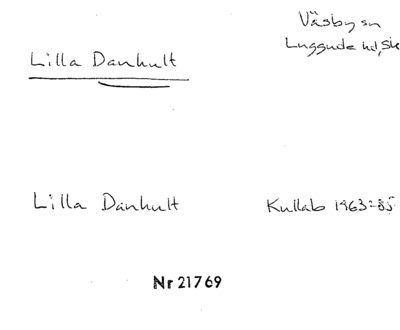 Väsby sn
Luggude hd, Sk
Lilla Danhult
Lilla Danhult
Kullab 1963:85
Nr 21769